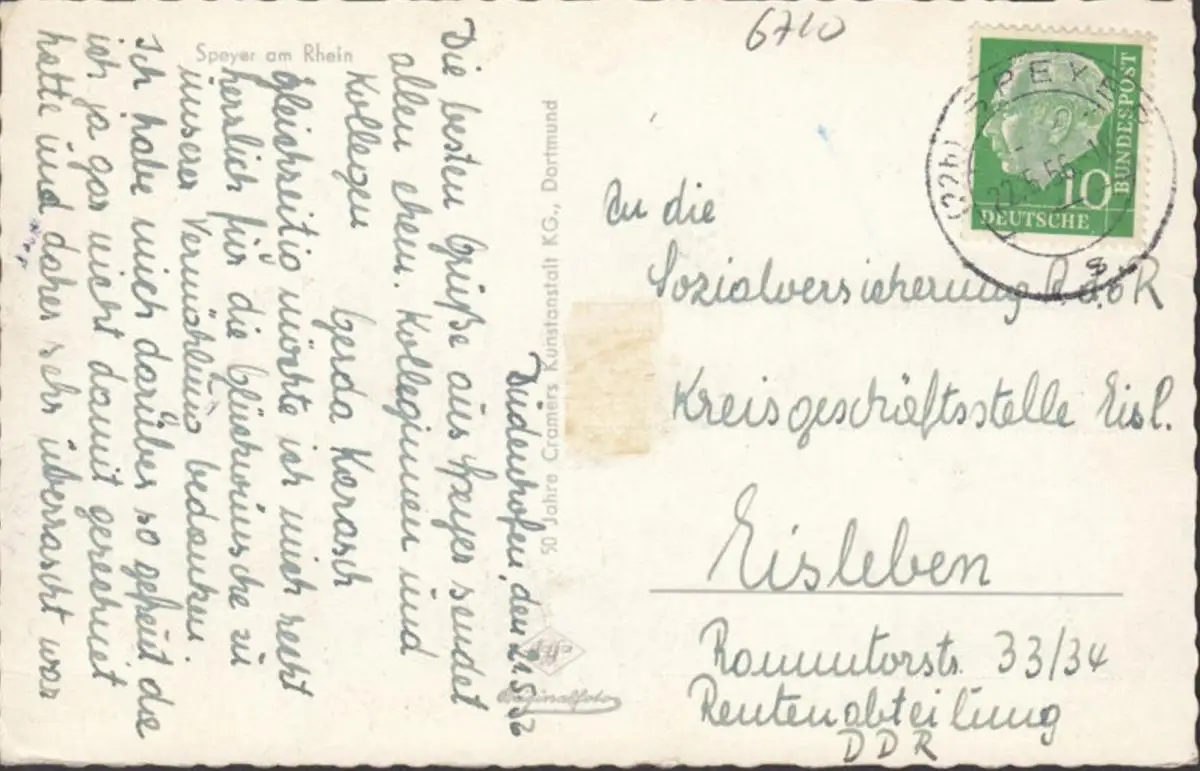 Speyer am Rhein
Dudenhofen, den 21.5.56
Die besten Grüße aus Speyer sendet
allen ehem. Kolleginnen und
Kollegen Gerda Karasch
Gleichzeitig möchte ich mich recht
herzlich für die Glückwünsche zu
unserer Vermählung bedanken.
Ich habe mich darüber so gefreut die
ich ja gar nicht damit gerechnet
hatte und daher sehr überrascht war
50 Jahre Cramers Kunstanstalt KG., Dortmund
Agfa
Originalfoto
6710
SPEYER
(22b)
22.5.56
DEUTSCHE
BUNDESPOST
10
An die
Sozialversicherung
Kreisgeschäftsstelle Eisl.
Eisleben
Rammtorstr. 33/34
Rentenabteilung
DDR